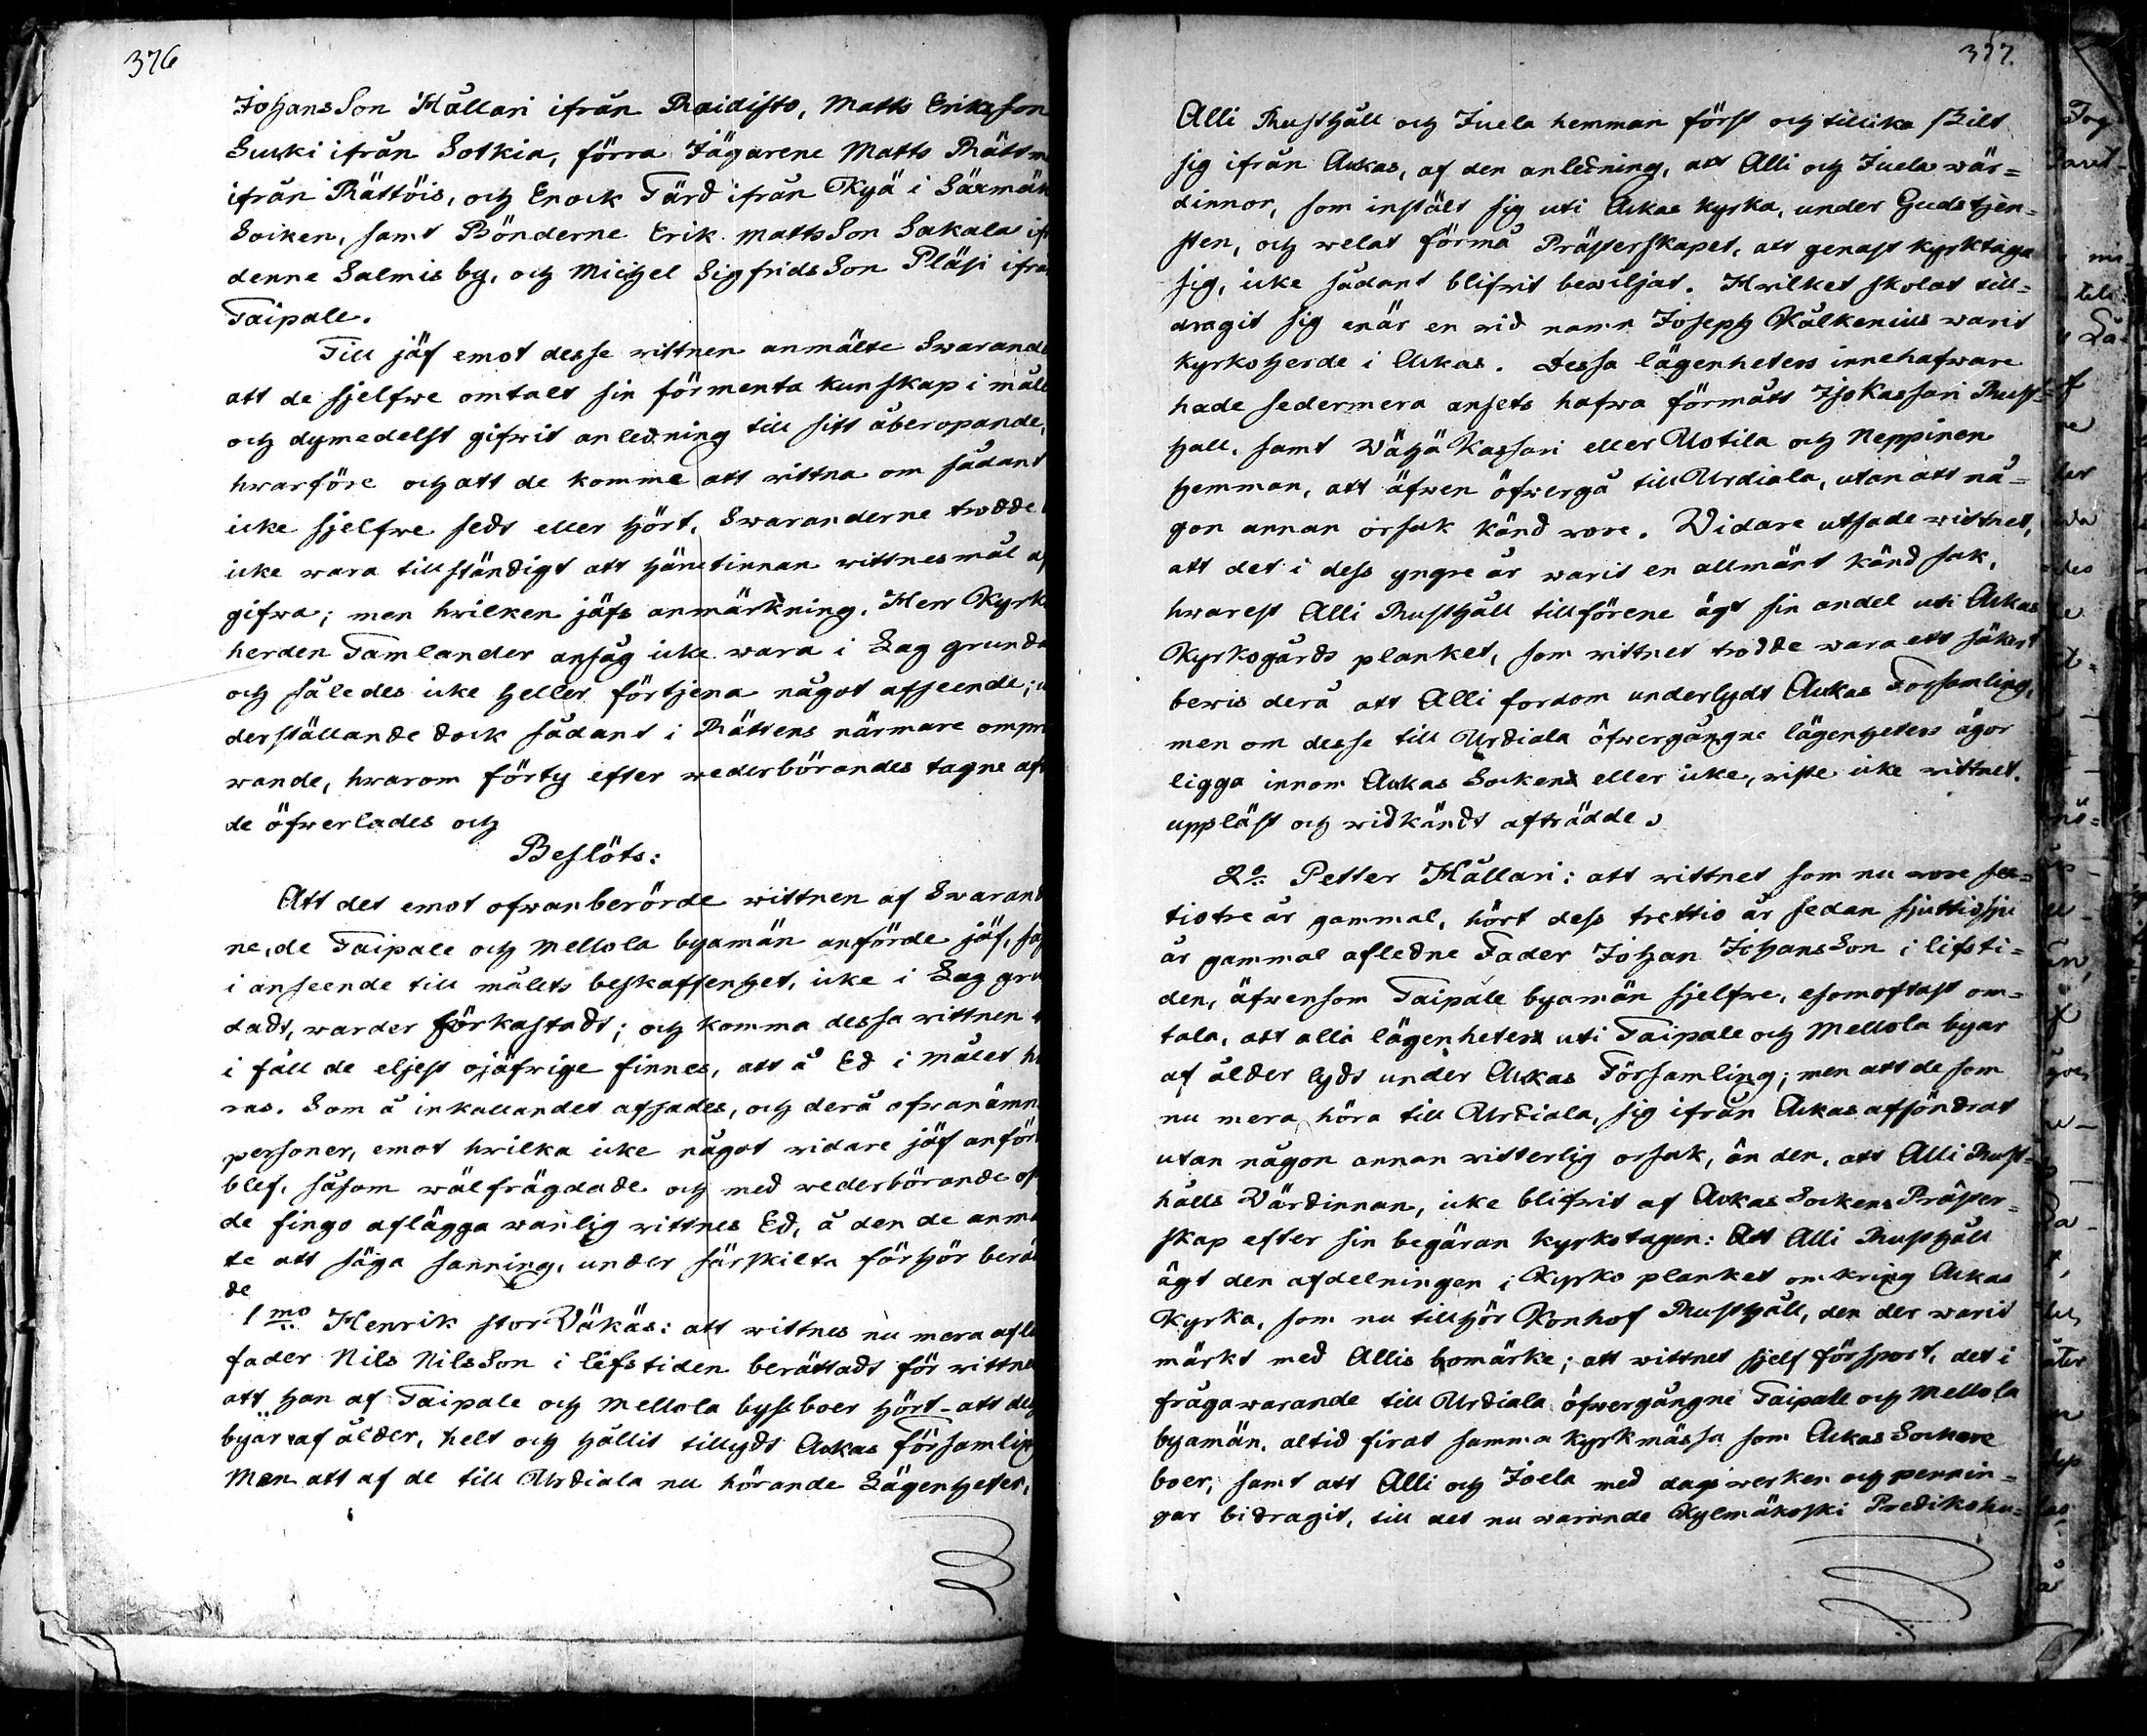 376
JohansSon Hällari ifrån Raidisto, Matts Eriksson
Suski ifrån Sotkia, förra Jägarene Matts Rättm
ifrån Rättöis, och Enock Färd ifrån Kyä i Säxmäk
Socken, samt Bönderne Erik MattsSon Sakala if
denne Salmis by, och Michel SigfridsSon Pläsi ifrå
Taipale.
Till jäf emot desse wittnen anmälte Swarande
att de sjelfwe omtalt sin förmenta kunskap i måle
och dymedelst gifwit anledning till sitt åberopande,
hwarföre och att de komme att wittna om sådant
icke sjelfwe sedt eller hört, Swaranderne trodde
icke wara tillständigt att hämtinnan wittnesmål af
gifwa; men hwilken jäfs anmärkning, Herr Kyrk
herden Tamlander ansåg icke wara i Lag grunda
och således icke heller förtjena något afseende; u
derställande dock sådant i Rättens närmare ompr
wande, hwarom förty efter wederbörandes tagne aft
de öfwerlades och
Beslöts:
Att det emot ofwanberörde wittnen af Swarand
ne, de Taipale och Mellola byamän anförde jäf, så
i anseende till målets beskaffenhet, icke i Lag gru
dadt, warder förkastadt; och komma dessa wittnen
i fall de eljest ojäfwige finnes, att å Ed i målet hö
ras. Som å inkallandet afsades, och derå ofwanämn
personer, emot hwilka icke något widare jäf anför
blef, såsom wälfrägdade och med wederbörande
de fingo aflägga wanlig wittnes Ed, å den de anma
te att säga sanning, under särskilta förhör berät
de
1mo Henrik stor Wäkäs: att wittnes nu mera afle
fader Nils NilsSon i lifstiden berättadt för wittne
att han af Taipale och Mellola bysboer hört att des
byar af ålder, helt och hållit tillydt Ackas församling
Men att af de till Urdiala nu hörande Lägenheter,
377.
Alli Rusthåll och Juela hemman först och tillika skilt
sig ifrån Ackas, af den anledning, att Alli och Juela wär=
dinnor, som instält sig uti Ackas kyrka, under Gudstjen=
sten, och welat förmå Prästerskapet, att genast kyrktaga
sig, icke sådant blifwit bewiljat. Hwilket skolat till=
dragit sig enär en wid namn Joseph Kålkenius warit
kyrkoherde i Ackas. Dessa lägenheters innehafware
hade sedermera ansets hafwa förmått IsoKassari Rust=
hall, samt Wähä Kassari eller Uotila och Neppinen
hemman, att äfwen öfwergå till Urdiala, utan att nå=
gon annan orsak känd wore. Widare utsade wittnet,
att det i dess yngre år warit en allmänt känd sak,
hwarest Alli Rusthåll tillförene ägt sin andel uti Ackas
Kyrkogårds planket, som wittnet trodde wara ett säkert
bewis derå att Alli fordom underlydt Ackas Församling,
men om desse till Urdiala öfwergångne lägenheters ägor
ligga innom Ackas Socken eller icke, wiste icke wittnet.
uppläst och widkändt afträdde.
2o: Petter Hällari: att wittnet som nu wore sex=
tiotre år gammal, hört dess trettio år sedan sjuttiosju
år gammal afledne Fader Johan JohansSon i lifsti=
den, äfwensom Taipale byamän sjelfwe, esomoftast om=
tala, att alla lägenheter uti Taipale och Mellola byar
af ålder lydt under Ackas Församling; men att de som
nu mera höra till Urdiala, sig ifrån Ackas afsöndrat
utan någon annan witterlig orsak, än den, att Alli Rust=
hålls Wärdinnan, icke blifwit af Ackas Sockens Präster=
skap efter sin begäran kyrkotagen: Att Alli Rusthåll
ägt den afdelningen i Kyrko planket omkring Ackas
Kyrka, som nu tillhör Konhof Rusthåll, den der warit
märkt med Allis bomärke; att wittnet sjelf försport, det i
fråga warande till Urdiala öfwergångne Taipale och Mellola
byamän, altid firat samma kyrkmässa som Ackas Sockne
boer, samt att Alli och Joela med dagswerken och pennin=
gar bidragit, till det nu warande Kylmäkoski Predikohu=